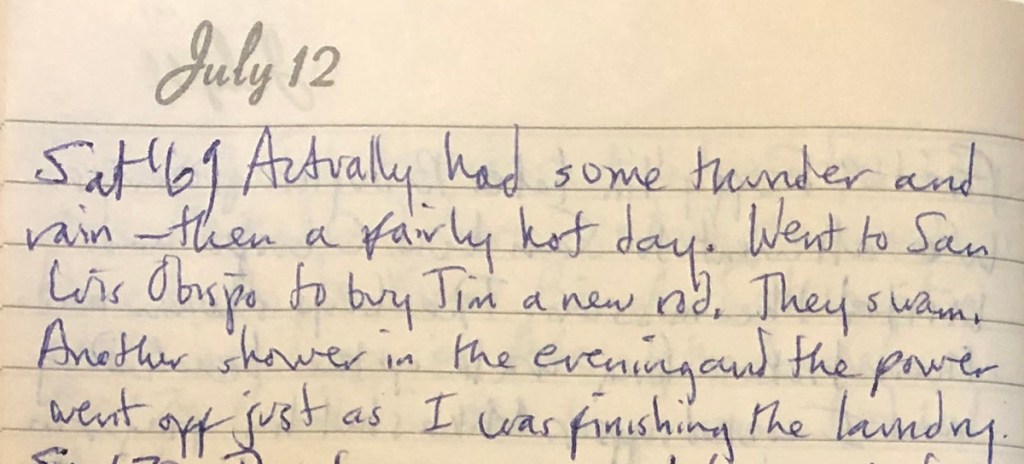 July 12
Sat '69 Actually had some thunder and
rain – then a fairly hot day. Went to San
Luis Obispo to buy Tim a new rod. They swam.
Another shower in the evening and the power
went off just as I was finishing the laundry.